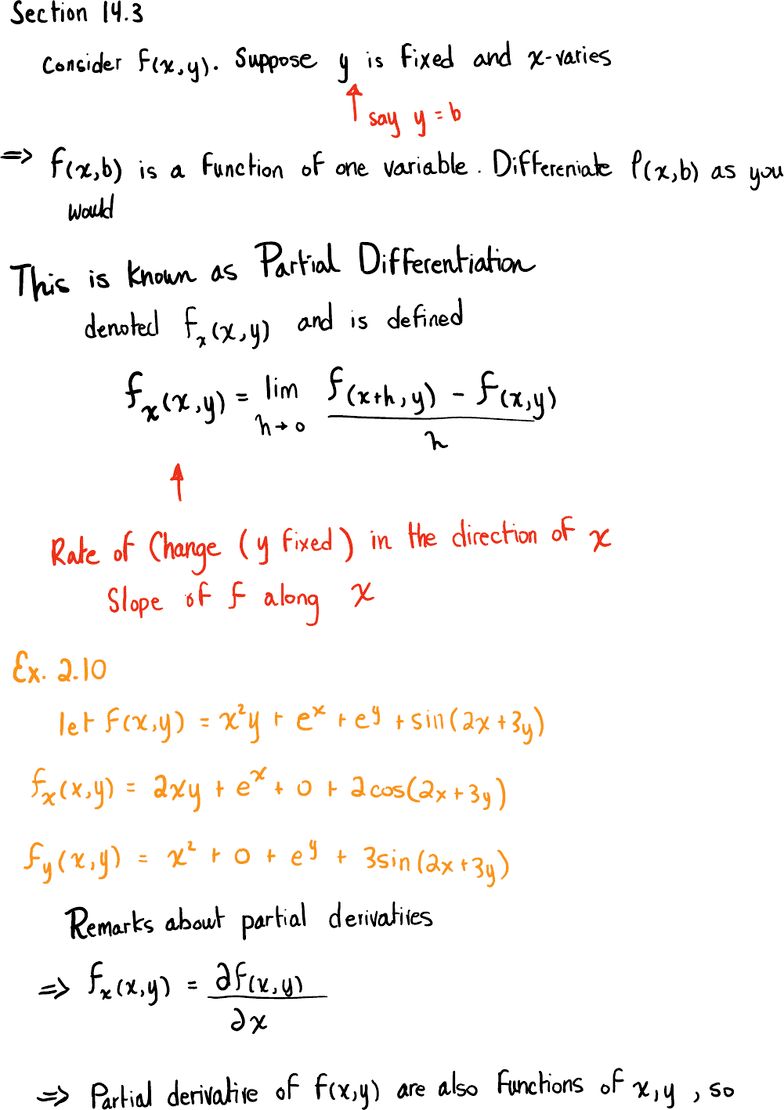 Section 14.3
Consider f(x,y). Suppose y is fixed and x-varies
say y = b
=> f(x,b) is a function of one variable. Differeniate f(x,b) as you
would
This is known as Partial Differentiation
denoted f_x(x,y) and is defined
f_x(x,y) = lim h→0 (f(x+h,y) - f(x,y))/h
Rate of Change (y fixed) in the direction of x
Slope of f along x
Ex. 2.10
let f(x,y) = x²y + e^x + e^y + sin(2x+3y)
f_x(x,y) = 2xy + e^x + 0 + 2cos(2x+3y)
f_y(x,y) = x² + 0 + e^y + 3sin(2x+3y)
Remarks about partial derivatives
=> f_x(x,y) = ∂f(x,y)/∂x
=> Partial derivative of f(x,y) are also functions of x,y, so